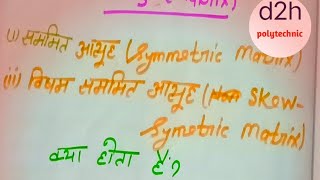 d2h
polytechnic
(i) सममित आव्यूह (Symmetric Matrix)
(ii) विषम सममित आव्यूह ( Skew-
Symetric Matrix)
क्या होता हैं?